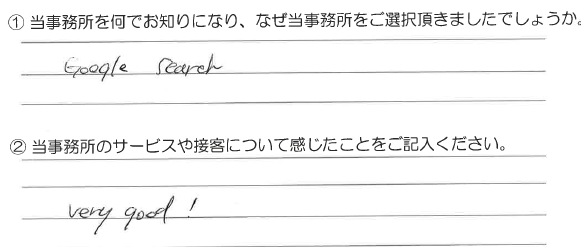 ① 当事務所を何でお知りになり、なぜ当事務所をご選択頂きましたでしょうか。
Google search
② 当事務所のサービスや接客について感じたことをご記入ください。
very good !